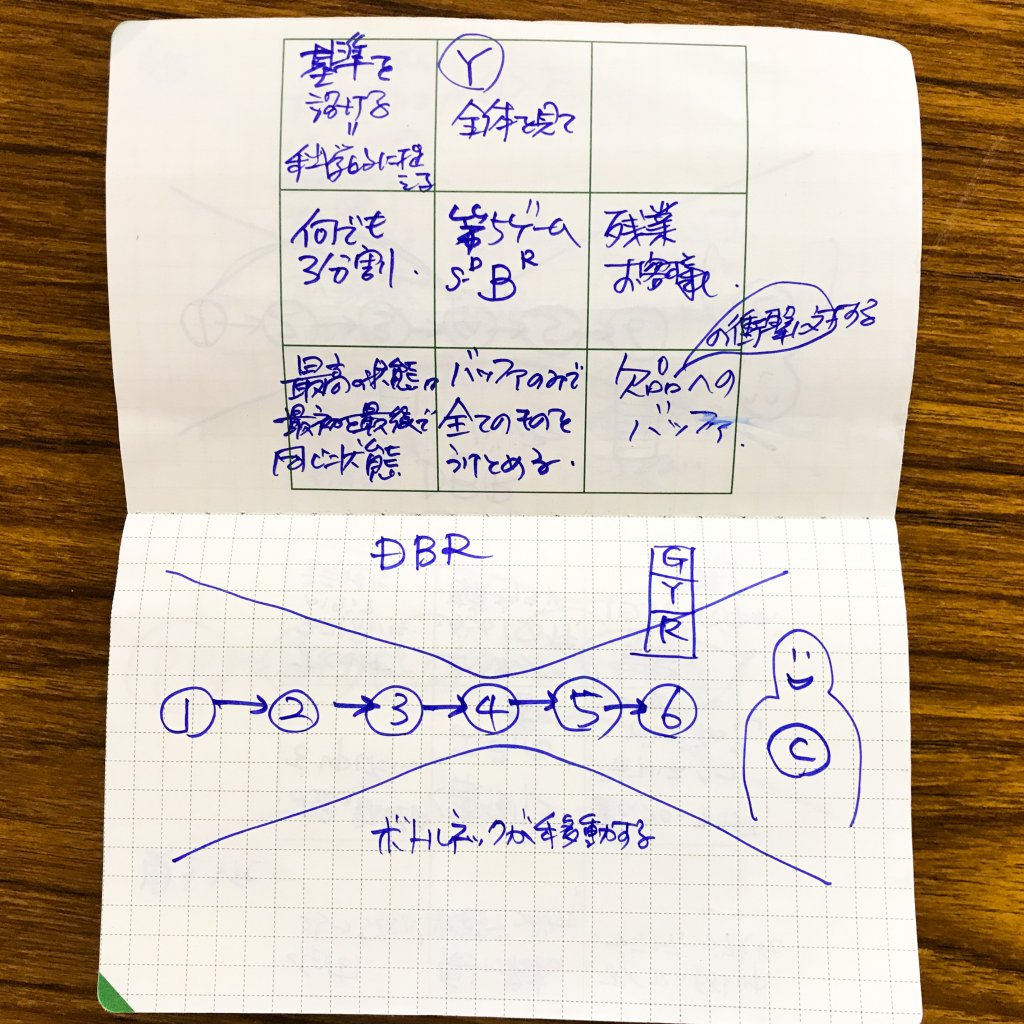 基準を
設ける
=
科学的に捉
える
Y
全体を見て
何でも
3分割.
第5ゲーム
S-DBR
残業
お客様.
の衝撃に対する
最高の状態は
最初と最後で
同じ状態
バッファのみで
全てのものを
うけとめる.
欠品への
バッファ.
DBR
G
Y
R
1 → 2 → 3 → 4 → 5 → 6
C
ボトルネックが移動する